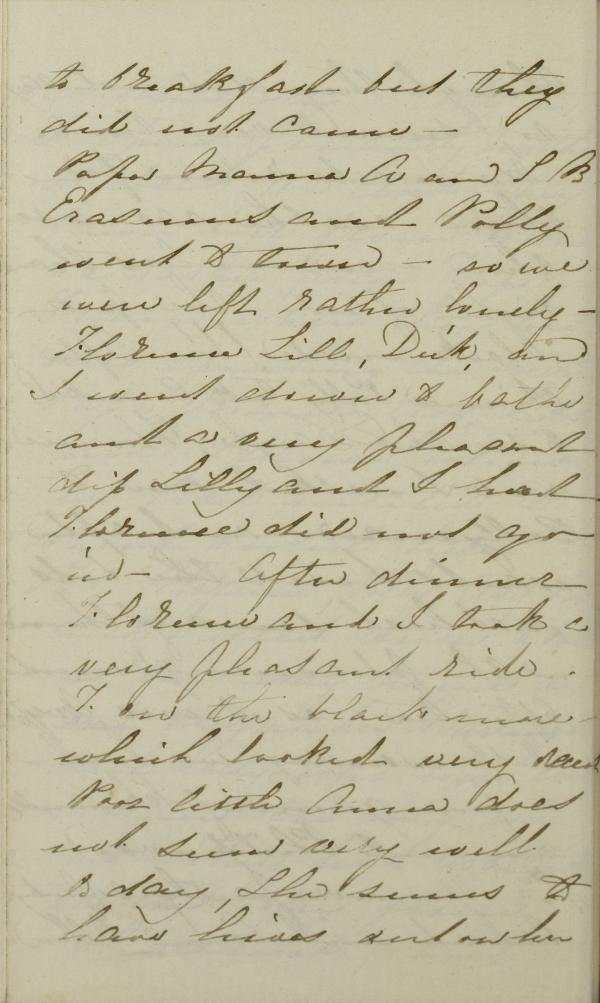 to breakfast but they
did not come —
Papa Mama A and S B
Erasmus and Polly
went to town — so we
were left rather lonely —
Florence Lill, Dick, and
I went down to bathe
and a very pleasant
dip Lilly and I had
Florence did not go
in — After dinner
Florence and I took a
very pleasant ride.
F. on the black mare
which looked very
Poor little Anna does
not seem very well
to day, She seems to
have hives out on her